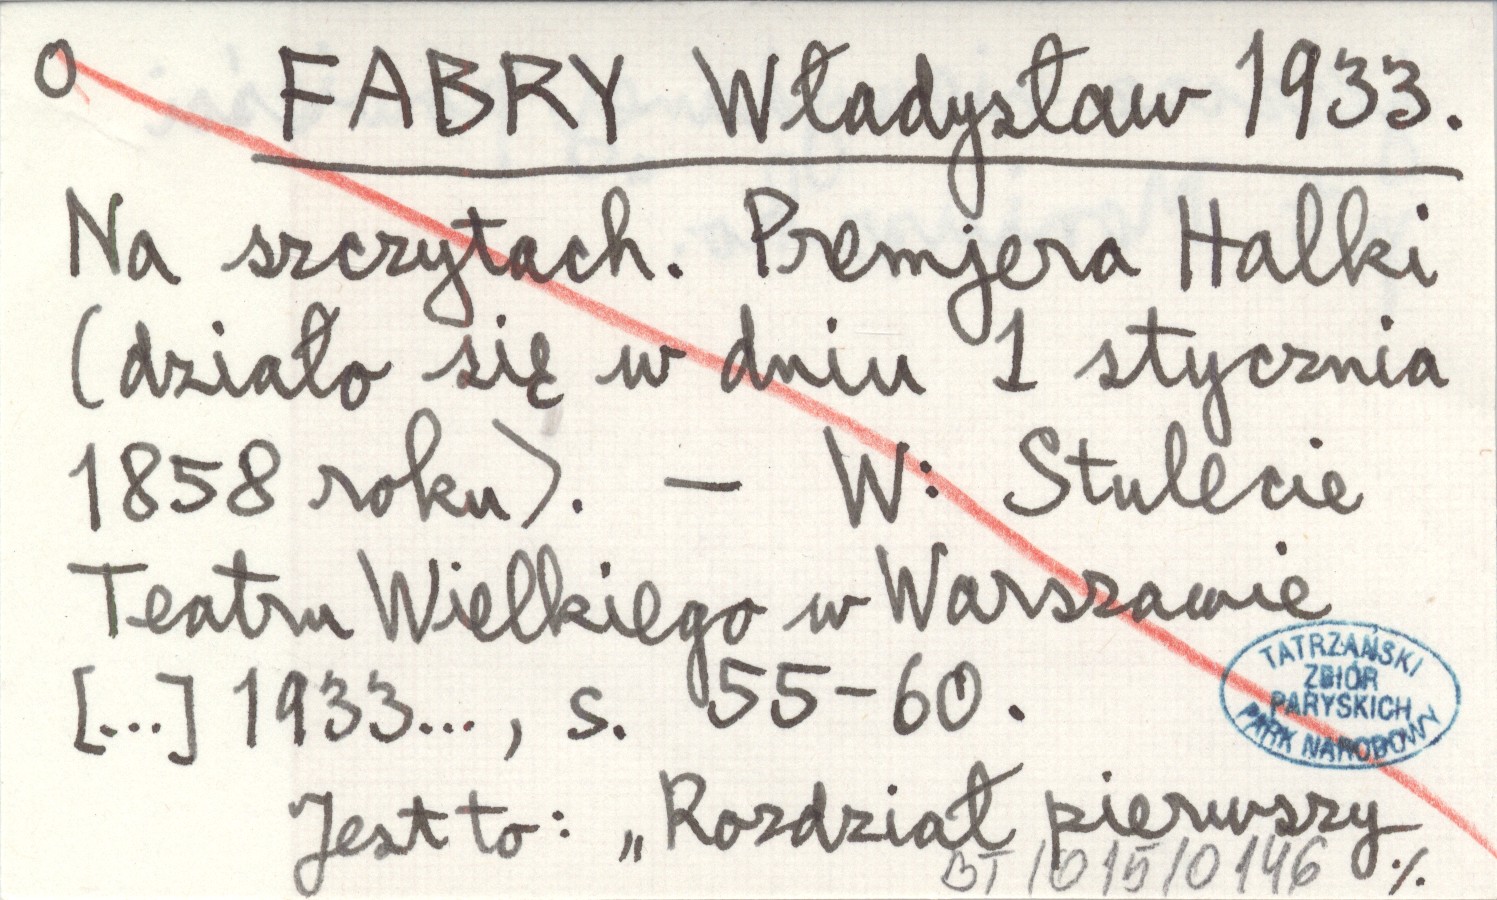 O FABRY Władysław 1933.
Na szczytach. Premjera Halki
(działo się w dniu 1 stycznia
1858 roku). — W: Stulecie
Teatru Wielkiego w Warszawie
[...] 1933..., s. 55-60.
TATRZAŃSKI
ZBIÓR
PARYSKICH
PARK NARODOWY
Jest to: „Rozdział pierwszy
BT/015/0146 ./.